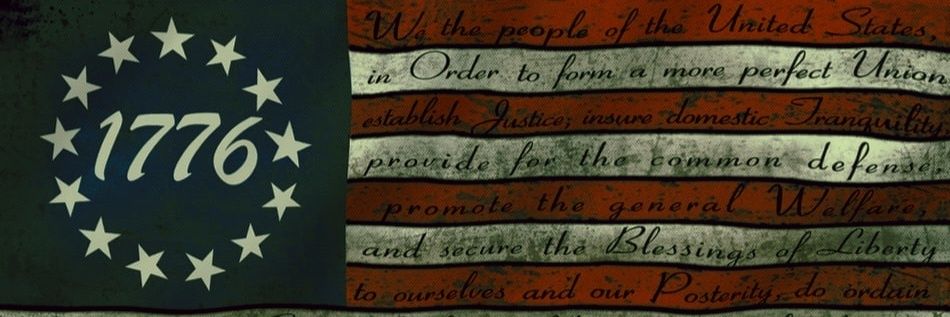 1776
We the people of the United States,
in Order to form a more perfect Union
establish Justice, insure domestic Tranquility
provide for the common defense,
promote the general Welfare,
and secure the Blessings of Liberty
to ourselves and our Posterity, do ordain